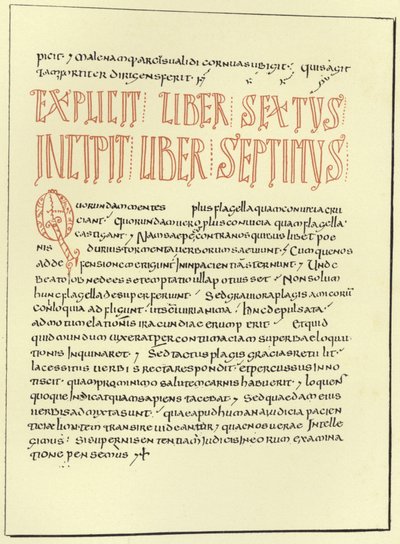 picit ⁊ malenam parcis validi cornuas ubigit · quis agit
tam fortiter dirigens ferit ·
EXPLICIT LIBER SEXTVS
INCIPIT LIBER SEPTIMUS
Quorundam mentes plus flagella quam convicia cru
ciant · Quorundam vero plus convicia quam flagella
castigant · ⁊ Nam saepe contra nos quibuslibet poe
nis duriustormenta verborum saeviunt · Cum que nos
ad defensionem erigunt in inpacientia sternunt · ⁊ Unde
beato iob ne deesset temptatio ulla potuisset · Non solum
hunc flagella desuper feriunt · Sed graviora plagis amicorum
conloquia adfligunt · ut sancti viri anima · hinc depulsata ·
ad motum elationis iracundiae erumperit · Et quid
quid mundum vixerat per contumaciam superbae loqui
tionis inquinaret · ⁊ Sed tactus plagis gracias retulit ·
lacessitus verbis recta respondit · et percussus inno
tiscit · quam pro minimo salutem carnis habuerit · ⁊ loquens
quoque indicat quam sapiens tacebat · ⁊ Sed quaedam eius
verbis admixta sunt · quae apud humana iudicia pacien
tiae limitem transire videantur · quae nos vere intelle
gimus · si supernis sententiam iudicis in eorum examina
tione pensemus ⁊